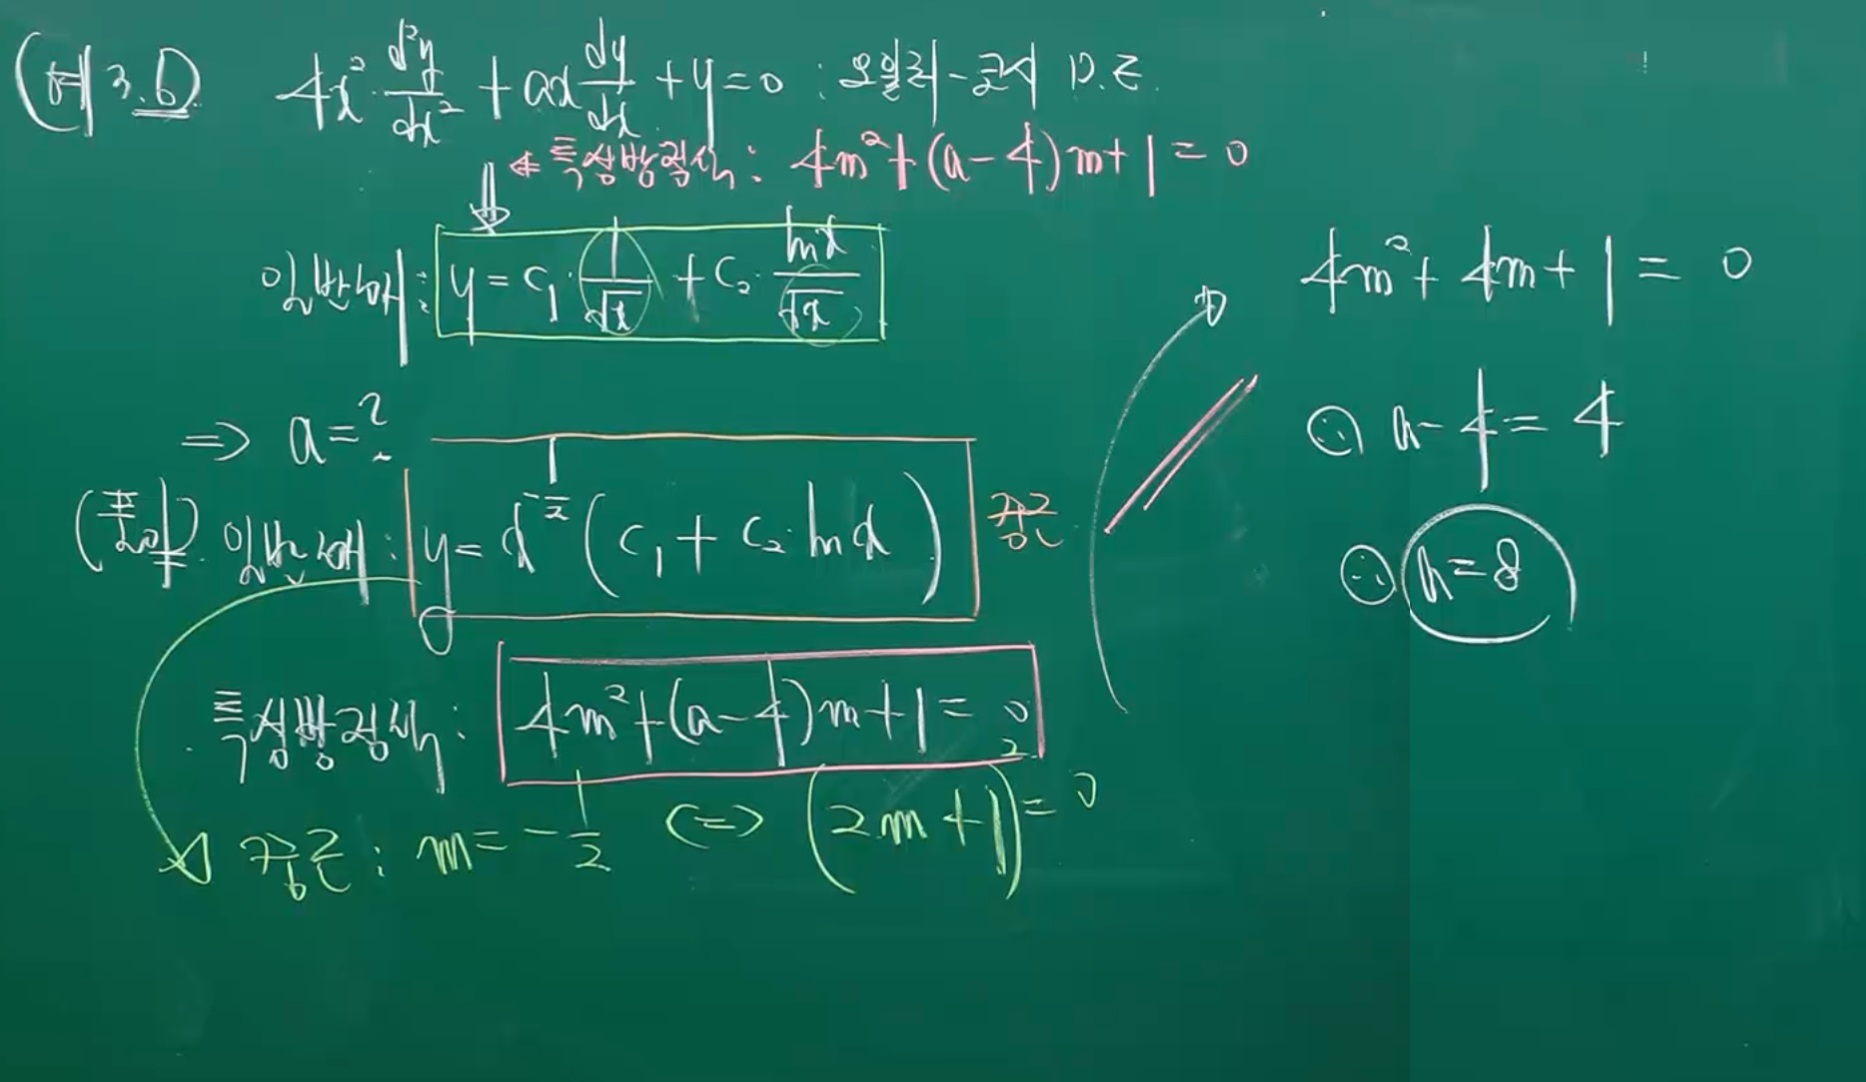 (예 3.6) 4x² d²y/dx² + ax dy/dx + y = 0 : 오일러-코시 D.E.
← 특성방정식: 4m²+(a-4)m+1=0
일반해: y = c₁·1/√x + c₂·lnx/√x
⇒ a=?
(풀이) 일반해: y = x^(-1/2) (c₁ + c₂·lnx) 중근
특성방정식: 4m²+(a-4)m+1=0
중근: m = -1/2 ⇔ (2m+1)² = 0
4m²+4m+1=0
∴ a-4=4
∴ a=8